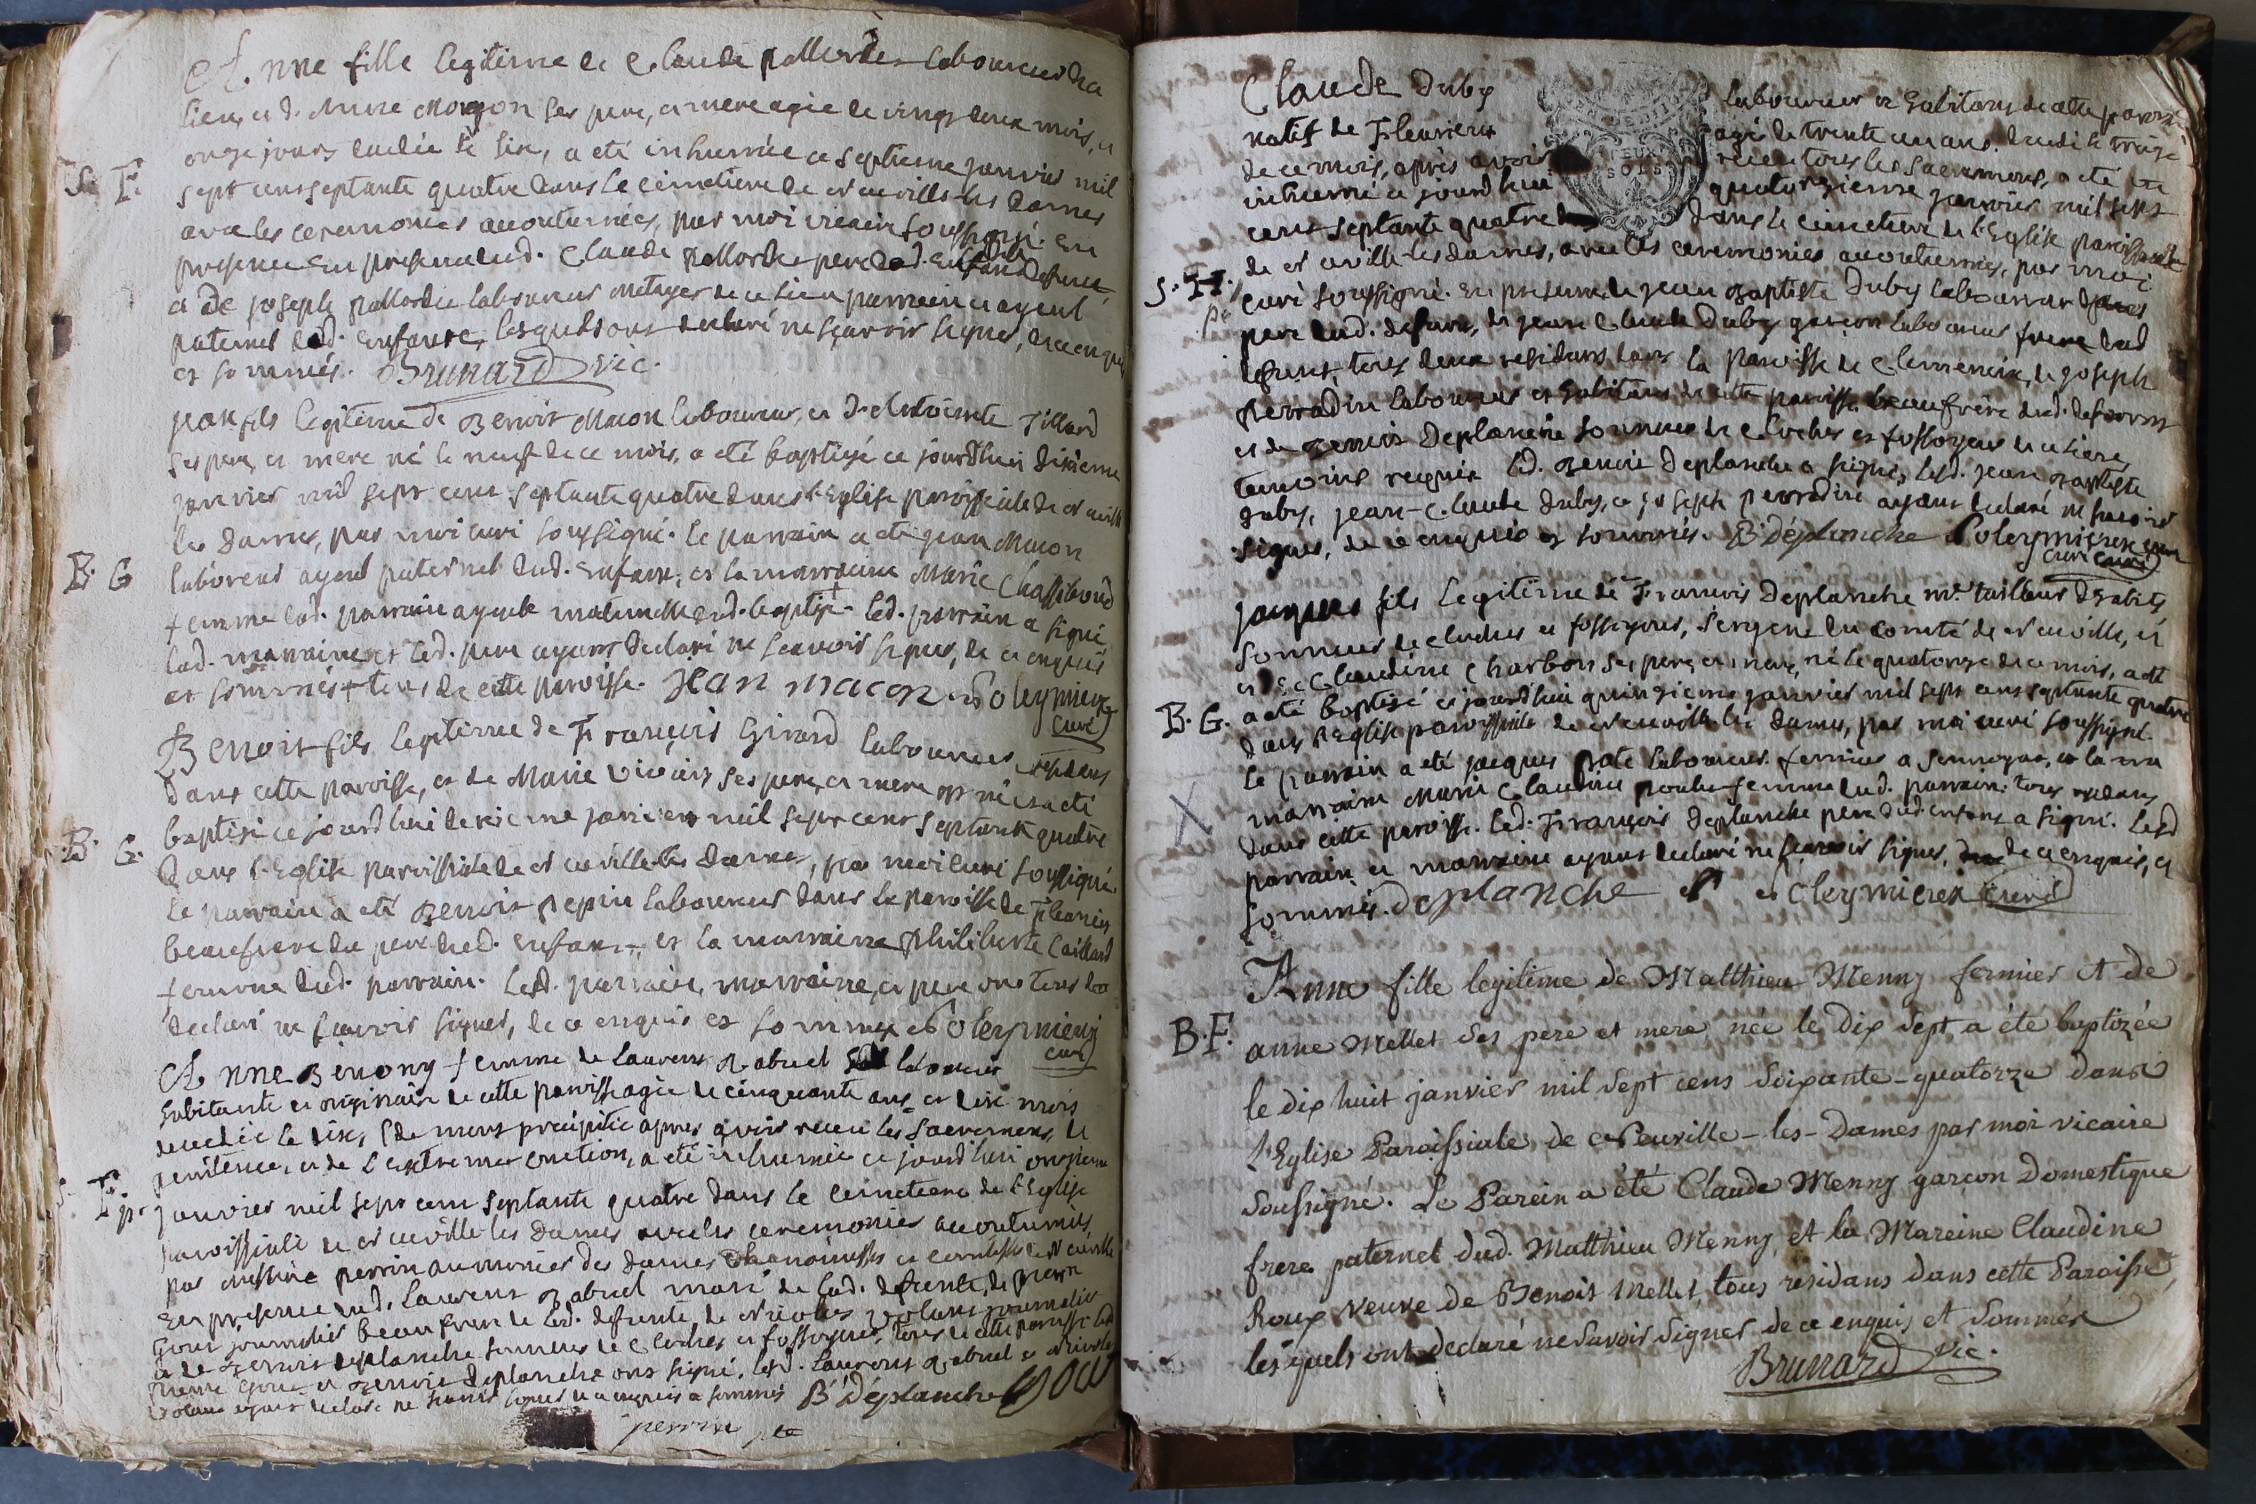 Anne fille legitime de Claude pallordet laboureur de ce
lieu, et d. Anne Morgon ses pere, et mere agée de vingt deux mois, et
onze jours decedée le six, a eté inhumée ce septieme janvier mil
S. F.
sept cens septante quatre dans le cimetiere de neuville les dames
avec les ceremonies accoutumées, par moi vicaire soussigné. En
presence en presence dud. Claude pallordet pere de lad. Enfant defunte,
et de joseph pallordet laboureur metayer de ce lieu parrain et ayeul
paternel de lad. Enfante, lesquels ont declaré ne sçavoir signer, de ce enquis
et sommés. Brunard vic.
jean fils legitime de Benoit Macon laboureur, et d. Antoinette Tillard
ses pere, et mere né le neuf de ce mois, a eté baptisé ce jourd'hui dixieme
janvier mil sept cens septante quatre dans l'Eglise paroissiale de neuville
les dames, par moi curé soussigné. Le parrain a eté jean Macon
B. G
laboureur ayeul paternel dud. enfant, et la marraine Marie Chassiboud
femme dud. parrain ayeule maternelle dud. baptisé. Led. parrain a signé
lad. marraine et led. pere ayant declaré ne sçavoir signer, de ce enquis
et sommés + tous de cette paroisse. jean macon Poleymieux
curé
Benoit fils legitime de François Girard laboureur residans
dans cette paroisse, et de Marie vivier ses pere, et mere né et a eté
baptisé ce jourd'hui dixieme janvier mil sept cens septante quatre
B. G.
dans l'Eglise paroissiale de neuville les dames, par moi curé soussigné.
Le parrain a eté Benoit pepin laboureur dans la paroisse de Fleurieu
beaufrere du pere dud. enfant, et la marraine philiberte Caillard
femme dud. parrain. Lesd. parrain, marraine, et pere ont tous
declaré ne sçavoir signer, de ce enquis et sommés Poleymieux
curé
Anne Benony femme de Laurens Gabuel laboureur
habitante et originaire de cette paroisse agée de cinquante ans et dix mois
decedée le dix, de mort precipitée apres avoir receu les Sacremens de
penitence, et de l'extreme onction, a eté inhumée ce jourd'hui onzieme
S. F.
pr
janvier mil sept cens septante quatre dans le cimetiere de l'Eglise
paroissiale de neuville les dames avec les ceremonies accoutumées
par messire perrin aumonier des dames chanoinesses et comtesses de neuville
en presence dud. Laurens Gabuel mari de lad. defunte, de pierre
Gout journalier beaufrere de lad. defunte, de Nicolas Volans journalier
et de Benoit deplanche sonneur de cloches et fossoyeur, tous de cette paroisse led.
pierre Gout et Benoit deplanche ont signé, lesd. Laurens Gabuel et Nicolas
Volans ayant declaré ne sçavoir signer de ce enquis et sommés B déplanche gout
perrin ptre
Claude Duby laboureur et habitans de cette paroisse
natif de Fleurieux agé de trente un ans, decedé le treize
de ce mois, après avoir receu tous les sacremens, a eté
inhumé ce jourd'hui quatorzieme janvier mil sept
cens septante quatre dans le cimetiere de l'Eglise paroissiale
de neuville les dames, avec les ceremonies accoutumées, par moi
S. H.
pr
curé soussigné. En presence de jean Baptiste Duby laboureur
pere dud. defunt, de jean Claude Duby garcon laboureur frere dud
defunt tous deux residans dans la paroisse de Clemencia, de joseph
perradin laboureur et habitans de cette paroisse beaufrère dud. defunt
et de Benoit deplanche sonneur de cloches et fossoyeur de ce lieu
temoins requis led. Benoit deplanche a signé, lesd. jean Baptiste
Duby, jean-Claude Duby, et joseph perradin ayant declaré ne savoir
signer, de ce enquis et sommés. B déplanche Poleymieux
curé
jacques fils legitime de François deplanche mre. tailleur d'habits
sonneur de cloches et fossoyeur, sergent du comté de neuville, et
et de Claudine Charbon ses pere, et mere, né le quatorze de ce mois, a eté
B. G.
a eté baptisé ce jourd'hui quinzieme janvier mil sept cens septante quatre
dans l'Eglise paroissiale de neuville les dames, par moi curé soussigné.
Le parrain a eté jacques prate laboureur fermier a , et la ma
X
marraine Marie Claudine femme dud. parrain. tous residans
dans cette paroisse. Led. François deplanche pere dud. enfant a signé. Lesd
parrain et marraine ayant declaré ne sçavoir signer, de ce enquis, et
sommés. deplanche Poleymieux curé
Anne fille legitime de Matthieu Menny fermier et de
B. F.
anne Mellet ses pere et mere, née le dix sept a été baptizée
le dix huit janvier mil sept cens soixante-quatorze dans
l'Eglise Paroissiale, de Neuville-les-Dames par moi vicaire
soussigné. Le Parein a été Claude Menny garçon Domestique
frere paternel dud. Matthieu Menny, et la Mareine Claudine
Roux veuve de Benoit Mellet, tous residans dans cette Paroisse,
lesquels ont declaré ne savoir signer de ce enquis et sommés
Brunard vic.